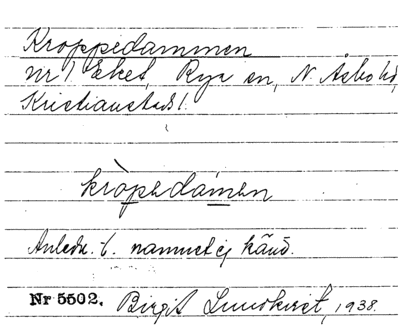 Kroppedammen
nr 1 Eket, Rya sn, N. Åsbo hd,
Kristianstads l.
kròpedámen
Anledn. t. namnet ej känd.
Nr 5502. Birgit Lundkvist, 1938.